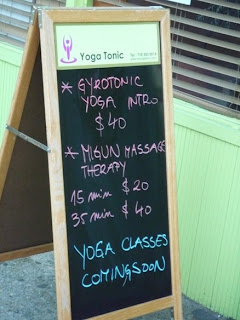 Yoga Tonic
* GYROTONIC
YOGA INTRO
$40
* MIGUN MASSAGE
THERAPY
15 min $20
35 min $40
YOGA CLASSES
COMING SOON